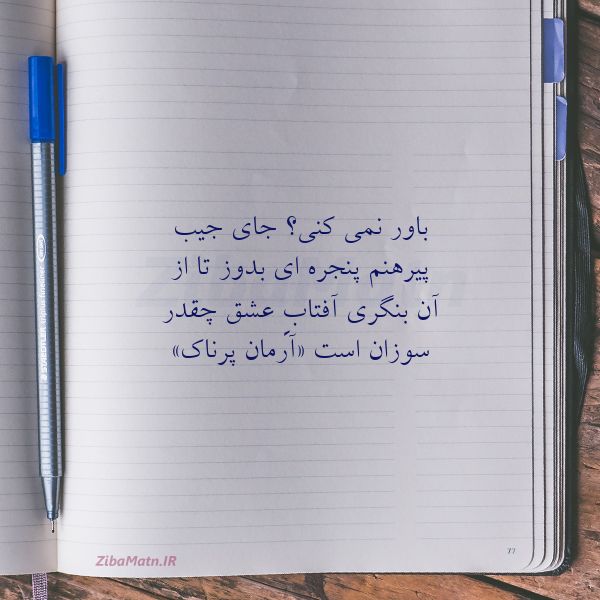 باور نمی کنی؟ جای جیب
پیرهنم پنجره ای بدوز تا از
آن بنگری آفتابِ عشق چقدر
سوزان است «آرمان پرناک»
STAEDTLER triplus fineliner
77
ZibaMatn.IR